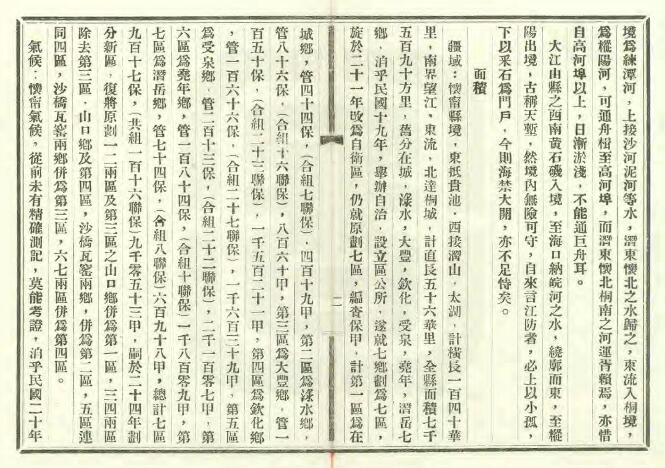 境為練潭河，上接沙河泥河等水，潛東懷北之水歸之，東流入桐境，
為樅陽河，可通舟楫至高河埠，而潛東懷北桐南之河運胥賴焉，亦惜
自高河埠以上，日漸淤淺，不能通巨舟耳。
大江由縣之西南黃石磯入境，至海口納皖河之水，繞廓而東，至樅
陽出境，古稱天塹，然境內無險可守，自來言江防者，必上以小孤，
下以采石為門戶，今則海禁大開，亦不足恃矣。
面積
疆域：懷甯縣境，東抵貴池，西接潛山，太湖，計橫長一百四十華
里，南界望江，東流，北達桐城，計直長五十六華里，全縣面積七千
五百九十方里，舊分在城，淥水，大豐，欽化，受泉，堯年，潛岳七
鄉，洎乎民國十九年，舉辦自治，設立區公所，遂就七鄉劃為七區，
旋於二十一年改為自衛區，仍就原劃七區，編查保甲，計第一區為在
二
城鄉，管四十四保，（合組七聯保），四百十九甲，第二區為淥水鄉，
管八十六保，（合組十六聯保），八百六十甲，第三區為大豐鄉，管一
百五十保，（合組二十三聯保），一千五百二十一甲，第四區為欽化鄉
，管一百六十六保，（合組二十七聯保），一千六百三十九甲，第五區
為受泉鄉，管二百十三保，（合組二十二聯保），二千一百零七甲，第
六區為堯年鄉，管一百八十四保，（合組十聯保）一千八百零九甲，第
七區為潛岳鄉，管七十四保，（合組八聯保）六百九十八甲，總計七區
九百十七保，（共組一百十六聯保）九千零五十三甲，嗣於二十四年劃
分新區，復將原劃一二兩區及第三區之山口鄉併為第一區，三四兩區
除去第三區，山口鄉及第四區，沙橋瓦窰兩鄉，併為第二區，五區連
同四區，沙橋瓦窰兩鄉併為第三區，六七兩區併為第四區。
氣候：懷甯氣候，從前未有精確測記，莫能考證，洎乎民國二十年